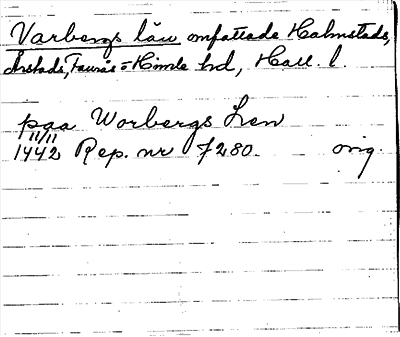 Varbergs län omfattade Halmstads,
Årstads, Faurås = Himle hd, Hall. l.
paa Worbergs Len
11/11
1442 Rep. nr 7280. orig.